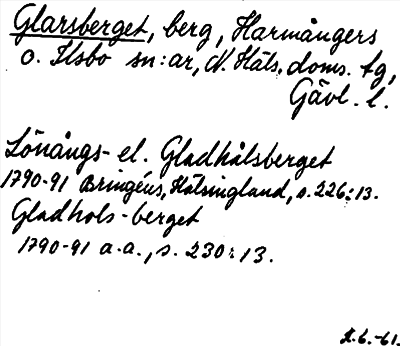 Glarsberget, berg, Harmångers
o. Ilsbo sn:ar, N. Häls. doms. tg,
Gävl. l.
Lönångs- el. Gladhålsberget
1790-91 Bringéus, Hälsingland, s. 226:13.
Gladhols-berget
1790-91 a.a., s. 230:13.